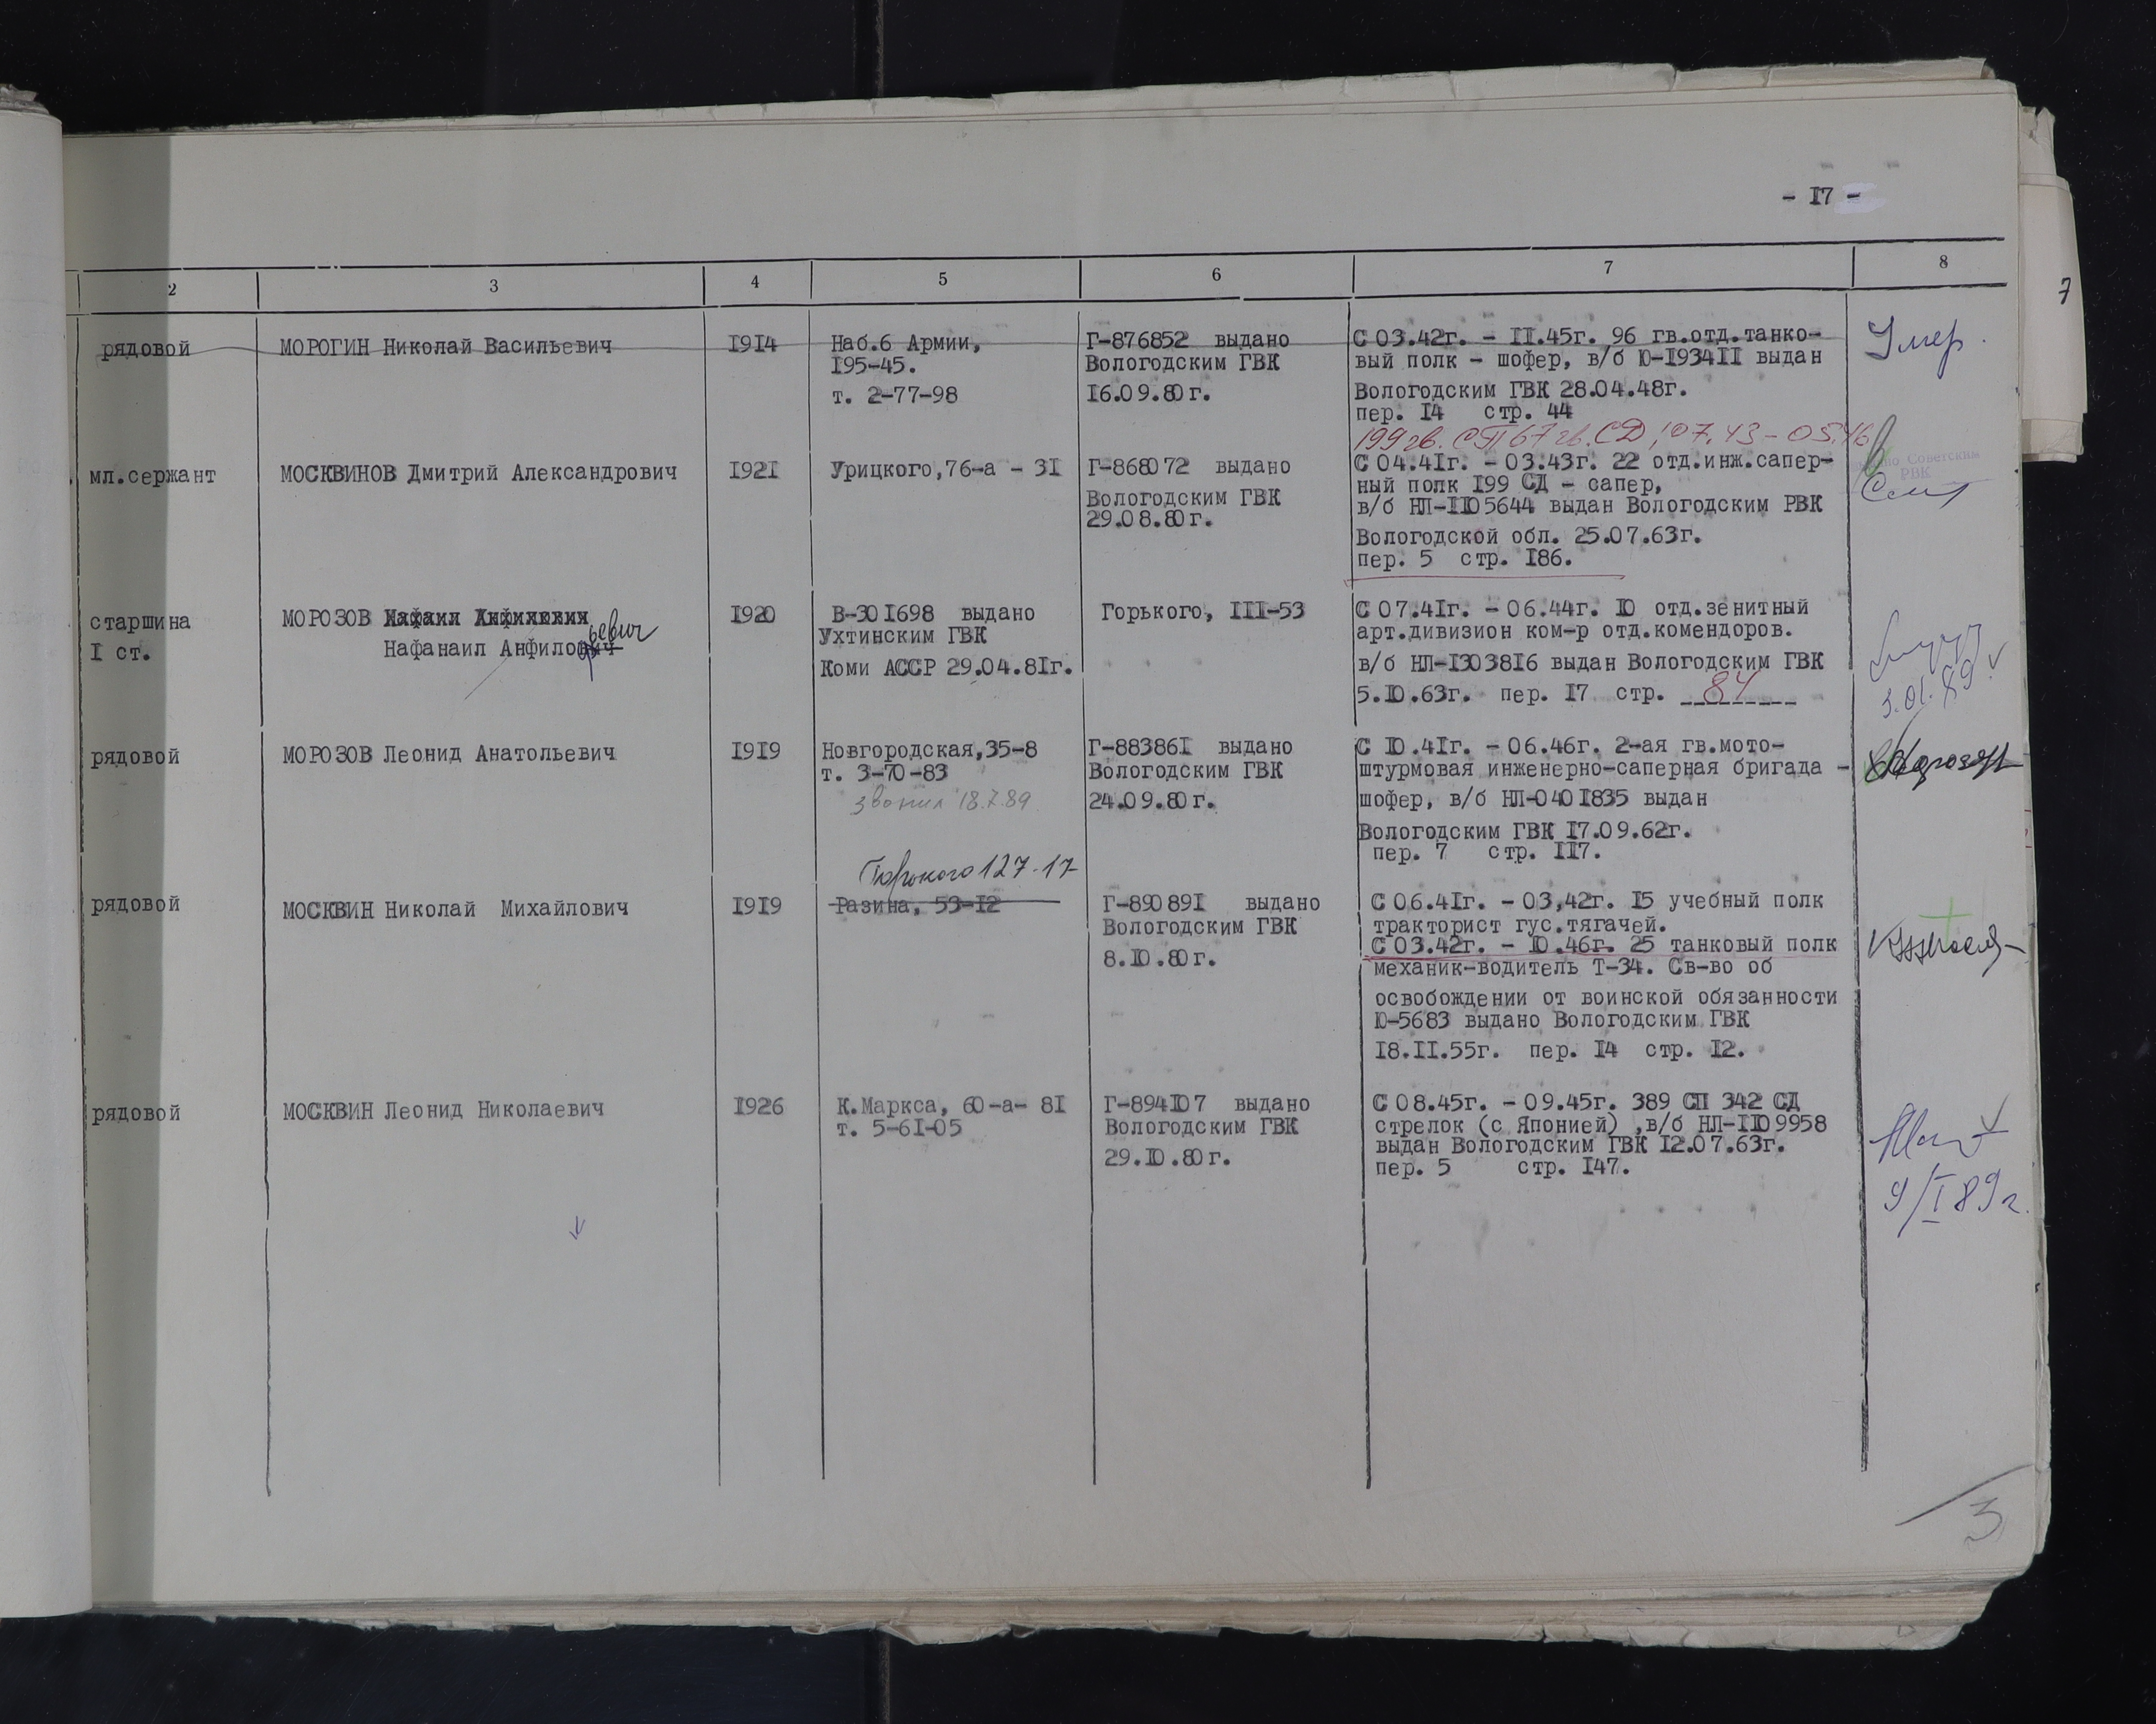 - I7 -
7
2 3 4 5 6 7 8
рядовой
МОРОГИН Николай Васильевич
I9I4
Наб.6 Армии,
I95-45.
т. 2-77-98
Г-876852 выдано
Вологодским ГВК
I6.09.80г.
С 03.42г. - II.45г. 96 гв.отд.танко-
вый полк - шофер, в/б Ю-I934II выдан
Вологодским ГВК 28.04.48г.
пер. I4 стр. 44
Умер.
199 гв. СП 67 гв. СД, 07.43 - 05.46
мл.сержант
МОСКВИНОВ Дмитрий Александрович
I92I
Урицкого,76-а - 3I
Г-868072 выдано
Вологодским ГВК
29.08.80г.
С 04.4Iг. - 03.43г. 22 отд.инж.сапер-
ный полк I99 СД - сапер,
в/б НЛ-II05644 выдан Вологодским РВК
Вологодской обл. 25.07.63г.
пер. 5 стр. I86.
Советским
РВК
старшина
I ст.
МОРОЗОВ
Нафанаил Анфилофьевич
I920
В-30I698 выдано
Ухтинским ГВК
Коми АССР 29.04.8Iг.
Горького, III-53
С 07.4Iг. - 06.44г. I0 отд.зенитный
арт.дивизион ком-р отд.комендоров.
в/б НЛ-I3038I6 выдан Вологодским ГВК
5.I0.63г. пер. I7 стр. 84
3.01.89
рядовой
МОРОЗОВ Леонид Анатольевич
I9I9
Новгородская,35-8
т. 3-70-83
звонил 18.7.89
Г-88386I выдано
Вологодским ГВК
24.09.80г.
С I0.4Iг. - 06.46г. 2-ая гв.мото-
штурмовая инженерно-саперная бригада -
шофер, в/б НЛ-040I835 выдан
Вологодским ГВК I7.09.62г.
пер. 7 стр. II7.
рядовой
МОСКВИН Николай Михайлович
I9I9
Горького 127-17
Разина, 53-I2
Г-89089I выдано
Вологодским ГВК
8.I0.80г.
С 06.4Iг. - 03,42г. I5 учебный полк
тракторист гус.тягачей.
С 03.42г. - I0.46г. 25 танковый полк
механик-водитель Т-34. Св-во об
освобождении от воинской обязанности
Ю-5683 выдано Вологодским ГВК
I8.II.55г. пер. I4 стр. I2.
рядовой
МОСКВИН Леонид Николаевич
I926
К.Маркса, 60-а- 8I
т. 5-6I-05
Г-894I07 выдано
Вологодским ГВК
29.I0.80г.
С 08.45г. - 09.45г. 389 СП 342 СД
стрелок (с Японией) ,в/б НЛ-II09958
выдан Вологодским ГВК I2.07.63г.
пер. 5 стр. I47.
9/I 89г.
3